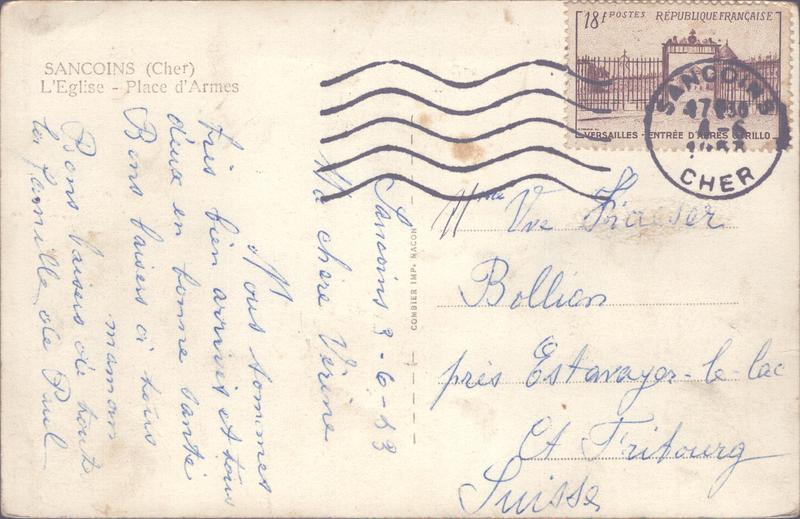 SANCOINS (Cher)
L'Eglise - Place d'Armes
18f POSTES RÉPUBLIQUE FRANÇAISE
VERSAILLES - ENTRÉE D'APRÈS UTRILLO
SANCOINS
4-6
CHER
COMBIER IMP. MACON
Sancoins 3-6-53
Ma chère Vérène
Nous sommes
très bien arrivés et tous
deux en bonne santé
Bons baisers à tous
maman
Bons baisers de toute
la famille de Paul
Mme Vve
Bollion
près Estavayer-le-lac
Ct Fribourg
Suisse